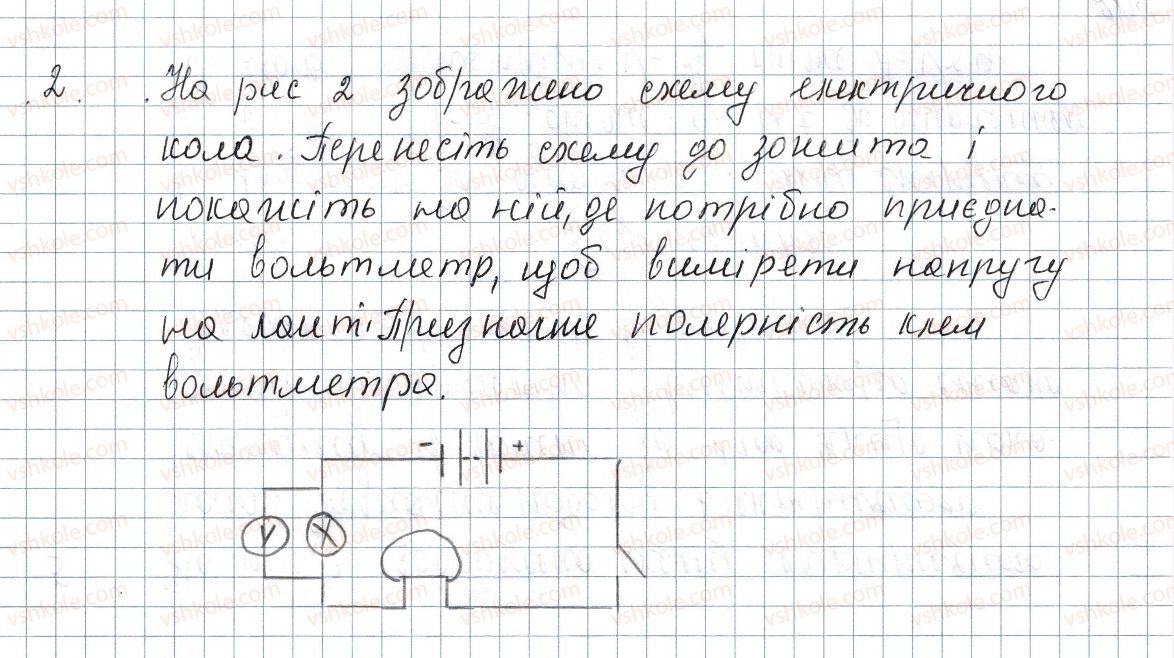 2. На рис 2 зображено схему електричного
кола. Перенесіть схему до зошита і
покажіть на ній, де потрібно приєдна-
ти вольтметр, щоб виміряти напругу
на лампі. Призначте полярність клем
вольтметра.
- +
V
vshkole.com